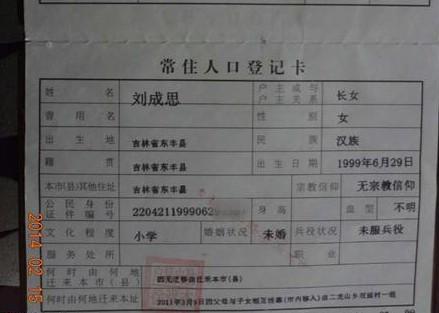 常住人口登记卡
姓名 刘成思 户主或与户主关系 长女
曾用名 性别 女
出生地 吉林省东丰县 民族 汉族
籍贯 吉林省东丰县 出生日期 1999年6月29日
本市(县)其他住址 吉林省东丰县 宗教信仰 无宗教信仰
公民身份证件编号 22042119990629 身高 血型 不明
文化程度 小学 婚姻状况 未婚 兵役状况 未服兵役
服务处所 职业
何时由何地迁来本市(县) 因无迁移由迁来本市(县)
何时由何地迁来本址 2011年3月9日因父母与子女相互投靠(市内移入)由二龙山乡 村一组
2014 02 15